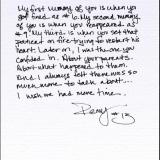 My first memory of you is when you
got fired as #10. My second memory
of you is when you reappeared as
#9. My third is when you set that
patient on fire trying to restart his
heart. Later on, I was the one you
confided in. About your parents.
About what happened to them.
And I always felt there was so
much more to talk about...
I wish we had more time.
Penny #13